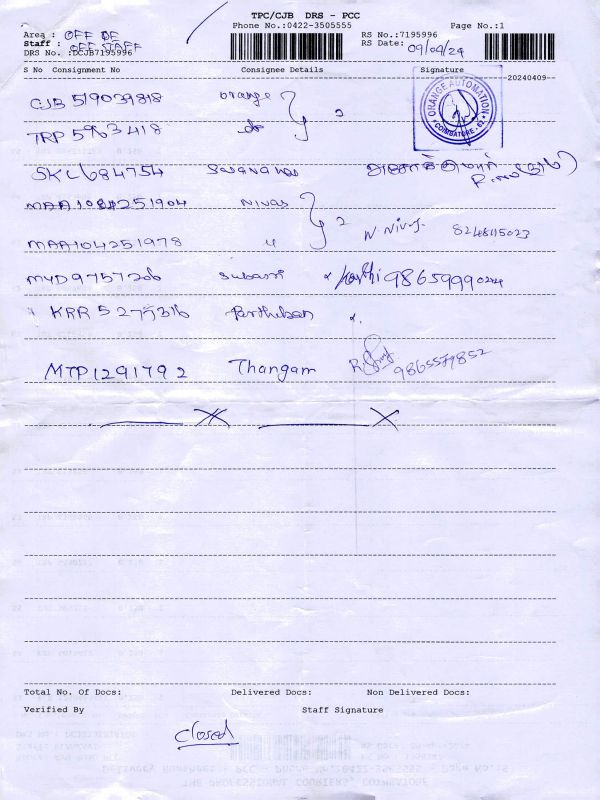 TPC/CJB DRS - PCC
Phone No.:0422-3505555 Page No.:1
Area : OFF DE RS No.:7195996
Staff : OFF STAFF RS Date: 09/04/24
DRS No. :DCJB7195996
S No Consignment No Consignee Details Signature
20240409
CJB 519039818 orange } 2
ORANGE AUTOMATION
COIMBATORE
TRP 5963418 do
SKL684754 Saravanan
MAA1084251904 Nivas } 2 N. Nivas. 8248115023
MAA104251978 "
MYD9757206 Subasri
KRR 5275316 Parthiban
MTP1291792 Thangam 9865579852
Total No. Of Docs: Delivered Docs: Non Delivered Docs:
Verified By Staff Signature
Closed